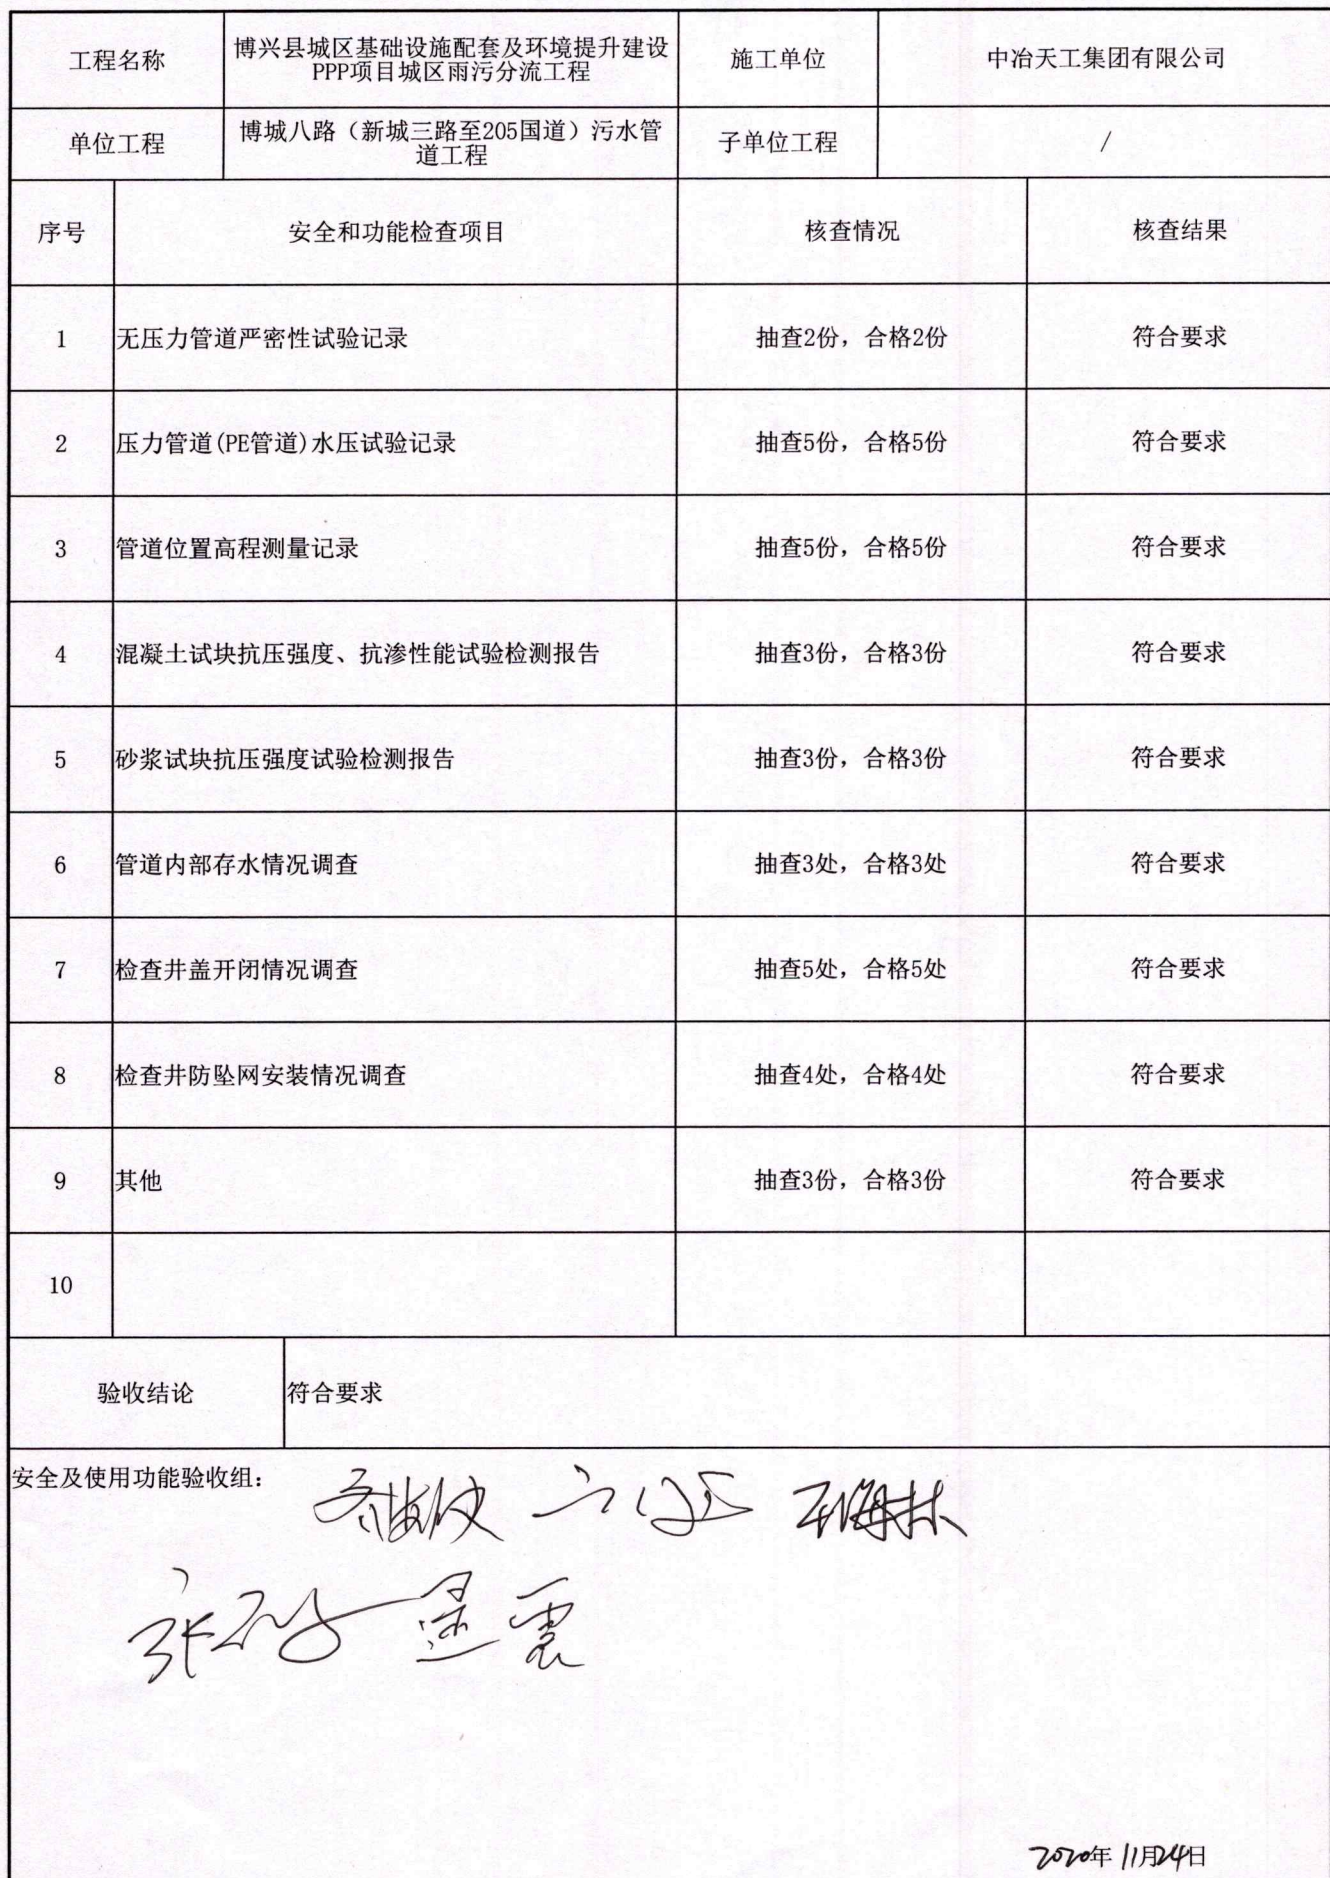 工程名称
博兴县城区基础设施配套及环境提升建设
PPP项目城区雨污分流工程
施工单位
中冶天工集团有限公司
单位工程
博城八路（新城三路至205国道）污水管
道工程
子单位工程
/
序号 安全和功能检查项目 核查情况 核查结果
1 无压力管道严密性试验记录 抽查2份，合格2份 符合要求
2 压力管道(PE管道)水压试验记录 抽查5份，合格5份 符合要求
3 管道位置高程测量记录 抽查5份，合格5份 符合要求
4 混凝土试块抗压强度、抗渗性能试验检测报告 抽查3份，合格3份 符合要求
5 砂浆试块抗压强度试验检测报告 抽查3份，合格3份 符合要求
6 管道内部存水情况调查 抽查3处，合格3处 符合要求
7 检查井盖开闭情况调查 抽查5处，合格5处 符合要求
8 检查井防坠网安装情况调查 抽查4处，合格4处 符合要求
9 其他 抽查3份，合格3份 符合要求
10
验收结论 符合要求
安全及使用功能验收组：
2020年11月24日